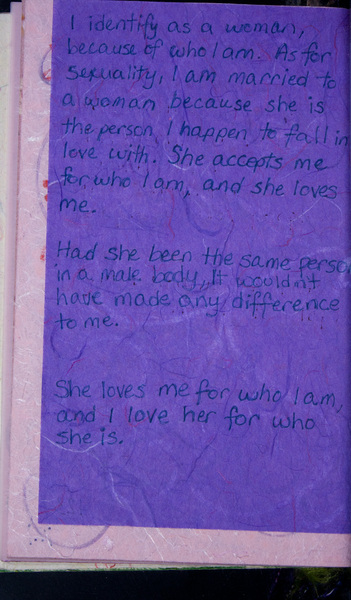 I identify as a woman,
because of who I am. As for
sexuality, I am married to
a woman because she is
the person I happen to fall in
love with. She accepts me
for who I am, and she loves
me.
Had she been the same person
in a male body, it wouldn't
have made any difference
to me.
She loves me for who I am,
and I love her for who
she is.